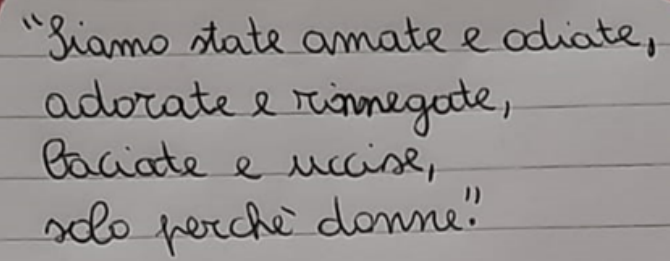 "Siamo state amate e odiate,
adorate e rinnegate,
baciate e uccise,
solo perchè donne."